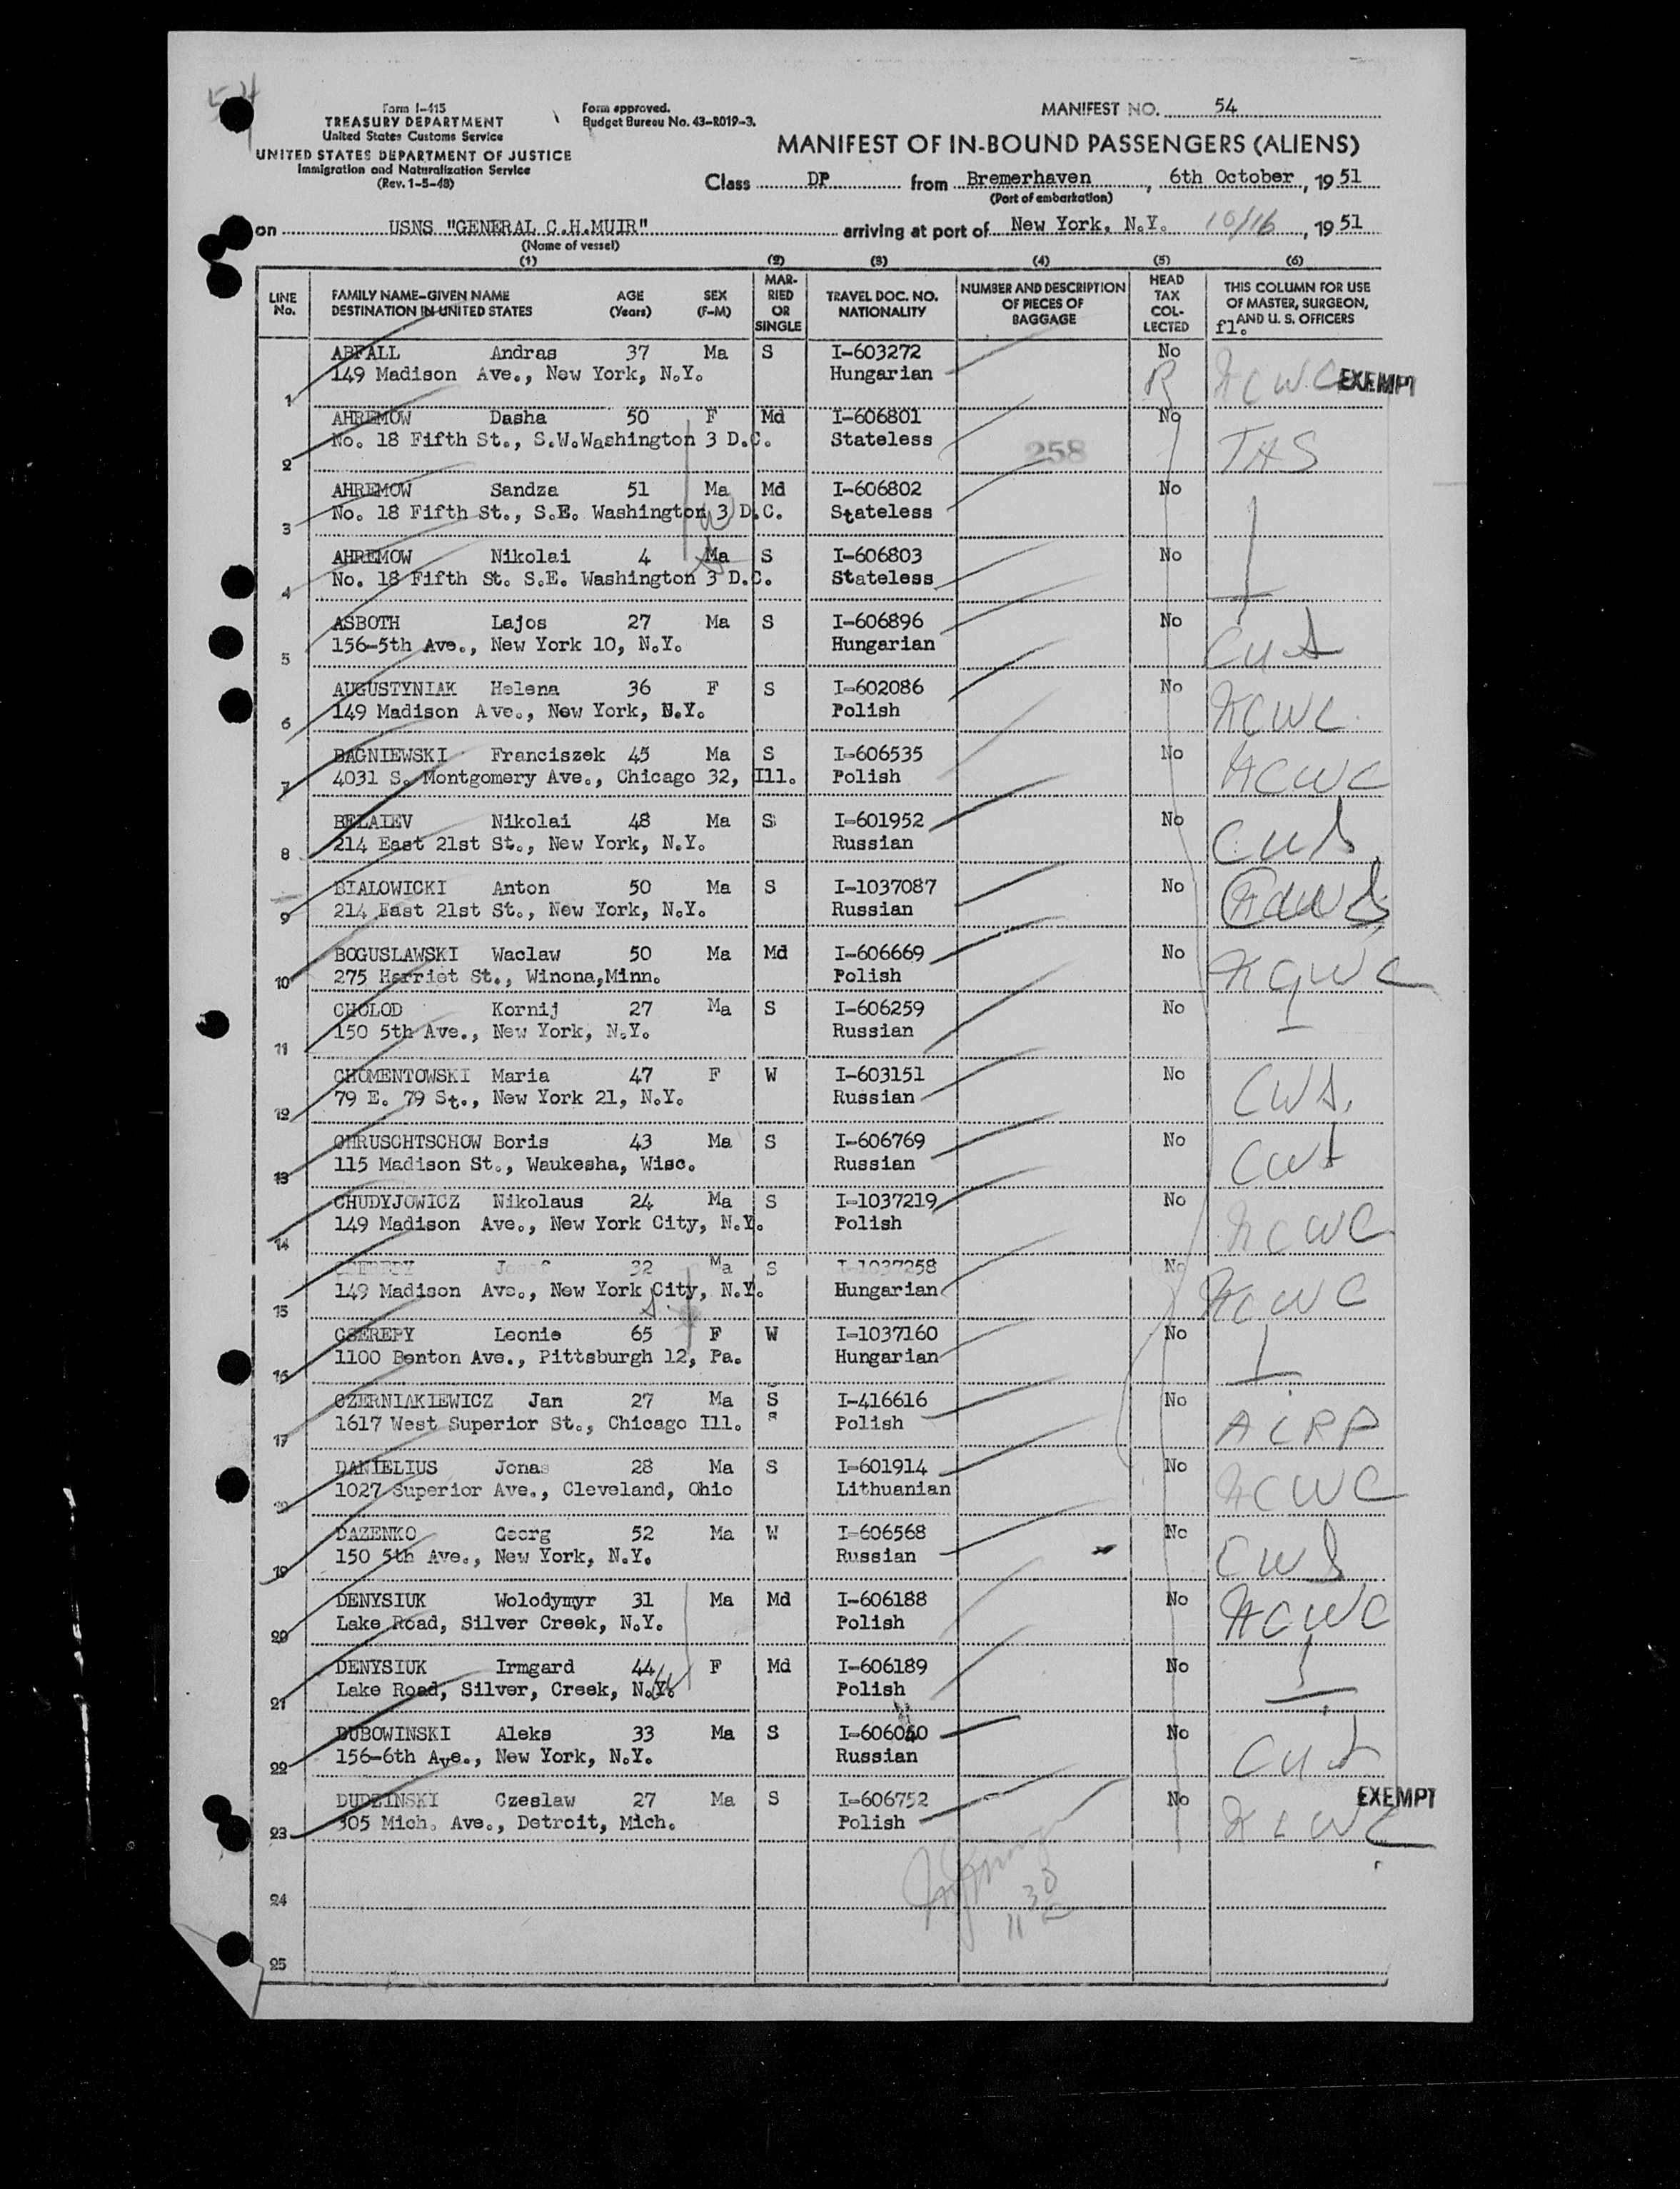 54
Form I-415
TREASURY DEPARTMENT
United States Customs Service
UNITED STATES DEPARTMENT OF JUSTICE
Immigration and Naturalization Service
(Rev. 1-5-48)
Form approved.
Budget Bureau No. 43-R019-3.
MANIFEST NO. 54
MANIFEST OF IN-BOUND PASSENGERS (ALIENS)
Class DP from Bremerhaven, 6th October, 19 51
(Port of embarkation)
on USNS "GENERAL C.H.MUIR" arriving at port of New York, N.Y. 10/16, 19 51
(Name of vessel)
(1) (2) (3) (4) (5) (6)
LINE No. FAMILY NAME-GIVEN NAME DESTINATION IN UNITED STATES AGE (Years) SEX (F-M) MARRIED OR SINGLE TRAVEL DOC. NO. NATIONALITY NUMBER AND DESCRIPTION OF PIECES OF BAGGAGE HEAD TAX COLLECTED THIS COLUMN FOR USE OF MASTER, SURGEON, AND U. S. OFFICERS
fl.
ABFALL Andras 37 Ma S I-603272 No
1 149 Madison Ave., New York, N.Y. Hungarian R NCWC EXEMPT
AHREMOW Dasha 50 F Md I-606801 No
2 No. 18 Fifth St., S.W.Washington 3 D.C. Stateless 258 TAS
AHREMOW Sandza 51 Ma Md I-606802 No
3 No. 18 Fifth St., S.E. Washington 3 D.C. Stateless
AHREMOW Nikolai 4 Ma S I-606803 No
4 No. 18 Fifth St. S.E. Washington 3 D.C. Stateless
ASBOTH Lajos 27 Ma S I-606896 No
5 156-5th Ave., New York 10, N.Y. Hungarian CWS
AUGUSTYNIAK Helena 36 F S I-602086 No
6 149 Madison Ave., New York, N.Y. Polish NCWC
BAGNIEWSKI Franciszek 45 Ma S I-606535 No
7 4031 S. Montgomery Ave., Chicago 32, Ill. Polish NCWC
BELAIEV Nikolai 48 Ma S I-601952 No
8 214 East 21st St., New York, N.Y. Russian CWS
BIALOWICKI Anton 50 Ma S I-1037087 No
9 214 East 21st St., New York, N.Y. Russian
BOGUSLAWSKI Waclaw 50 Ma Md I-606669 No
10 275 Harriet St., Winona,Minn. Polish NCWC
CHOLOD Kornij 27 Ma S I-606259 No
11 150 5th Ave., New York, N.Y. Russian
CHOMENTOWSKI Maria 47 F W I-603151 No
12 79 E. 79 St., New York 21, N.Y. Russian CWS.
CHRUSCHTSCHOW Boris 43 Ma S I-606769 No
13 115 Madison St., Waukesha, Wisc. Russian CWS
CHUDYJOWICZ Nikolaus 24 Ma S I-1037219 No
14 149 Madison Ave., New York City, N.Y. Polish NCWC
32 Ma S I-1037258 No
15 149 Madison Ave., New York City, N.Y. Hungarian NCWC
CSEREPY Leonie 65 F W I-1037160 No
16 1100 Benton Ave., Pittsburgh 12, Pa. Hungarian
CZERNIAKIEWICZ Jan 27 Ma S I-416616 No
17 1617 West Superior St., Chicago Ill. S Polish ACRP
DANIELIUS Jonas 28 Ma S I-601914 No
18 1027 Superior Ave., Cleveland, Ohio Lithuanian NCWC
DAZENKO Georg 52 Ma W I-606568 No
19 150 5th Ave., New York, N.Y. Russian CWS
DENYSIUK Wolodymyr 31 Ma Md I-606188 No
20 Lake Road, Silver Creek, N.Y. Polish NCWC
DENYSIUK Irmgard 44 F Md I-606189 No
21 Lake Road, Silver, Creek, N.Y. Polish
DUBOWINSKI Aleks 33 Ma S I-606040 No
22 156-6th Ave., New York, N.Y. Russian CWS
DUDZINSKI Czeslaw 27 Ma S I-606752 No EXEMPT
23 305 Mich. Ave., Detroit, Mich. Polish NCWC
24
25